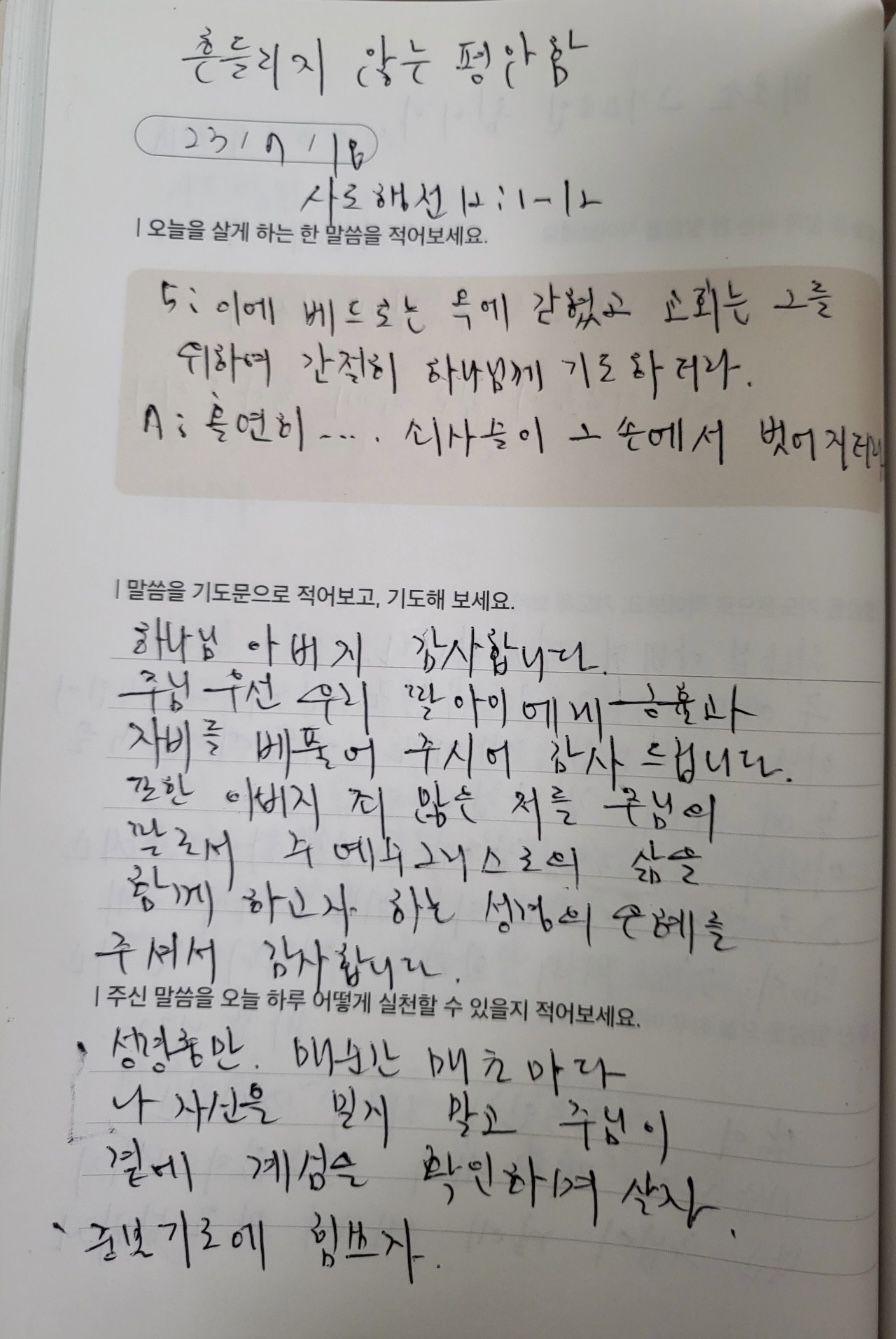 흔들리지 않는 평안함
23/7/18
사도행전 12:1-12
| 오늘을 살게 하는 한 말씀을 적어보세요.
5: 이에 베드로는 옥에 갇혔고 교회는 그를
위하여 간절히 하나님께 기도하더라.
7: 홀연히 .... 쇠사슬이 그 손에서 벗어지더라
| 말씀을 기도문으로 적어보고, 기도해 보세요.
하나님 아버지 감사합니다.
주님 우선 우리 딸 아이에게 긍휼과
자비를 베풀어 주시어 감사드립니다.
또한 아버지 죄 많은 저를 주님의
딸로서 주 예수그리스도의 삶을
함께 하고자 하는 성령의 은혜를
주셔서 감사합니다.
| 주신 말씀을 오늘 하루 어떻게 실천할 수 있을지 적어보세요.
성령충만. 매순간 매초마다
나 자신을 믿지 말고 주님이
곁에 계심을 확인하며 살자.
중보기도에 힘쓰자.